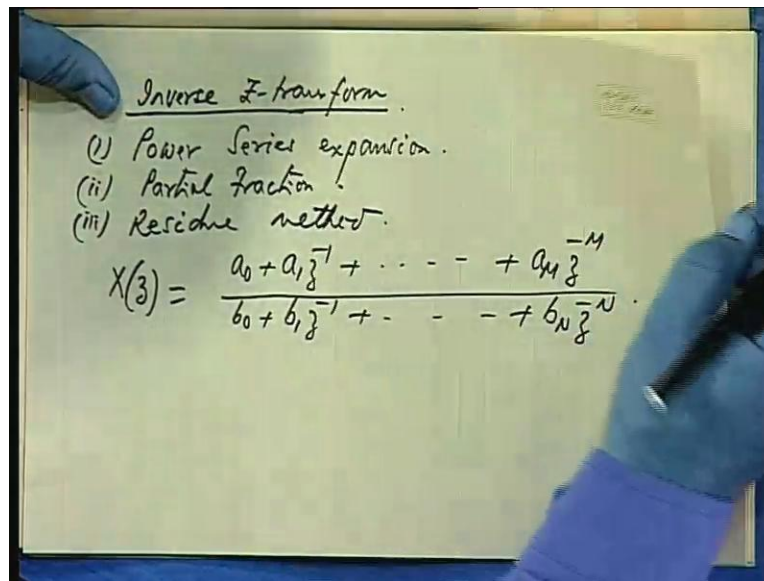 Inverse Z-transform.
(i) Power Series expansion.
(ii) Partial Fraction.
(iii) Residue method.
X(z) = a₀ + a₁z⁻¹ + ····- - + a_M z^-M
b₀ + b₁z⁻¹ + - - - + b_N z^-N.